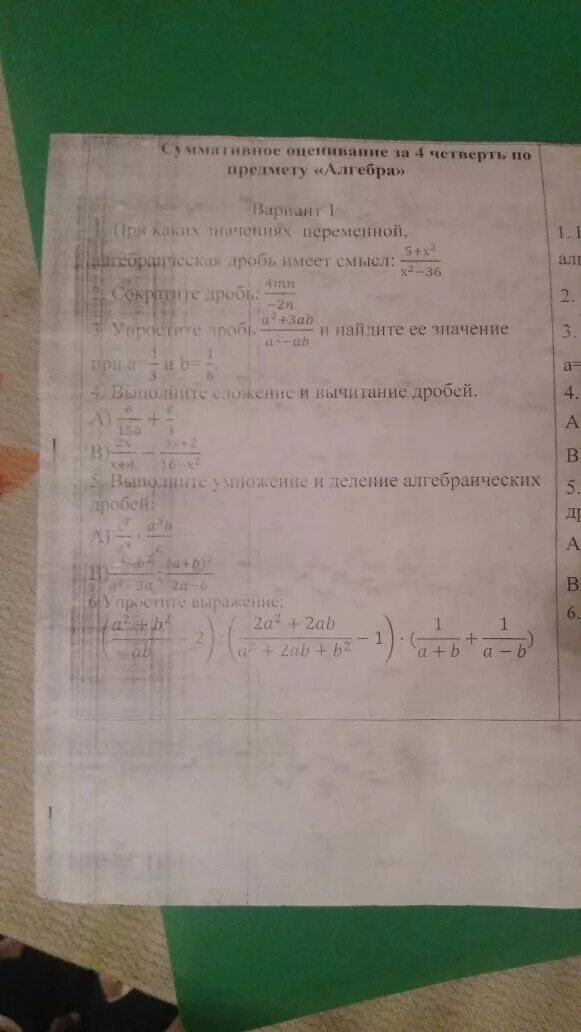 Суммативное оценивание за 4 четверть по
предмету «Алгебра»
Вариант 1
1. При каких значениях переменной,
алгебраическая дробь имеет смысл: (5+x²)/(x²−36)
2. Сократите дробь: 4mn/(−2n)
3. Упростите дробь (a²+3ab)/(a²−ab) и найдите ее значение
при a=1/3 и b=1/6.
4. Выполните сложение и вычитание дробей.
А) /15b + c/3
В) 2x/(x+4) − (3x+2)/(16−x²)
5. Выполните умножение и деление алгебраических
дробей:
А) c²/a⁴ · a³b/c
В) /(a²−3a) : (a+b)²/(2a−6)
6 Упростите выражение:
((a² + b²)/ab − 2) : ((2a² + 2ab)/(a² + 2ab + b²) − 1) · (1/(a + b) + 1/(a − b))
1.
2.
3.
a=
4.
А
В
5.
А
В
6.